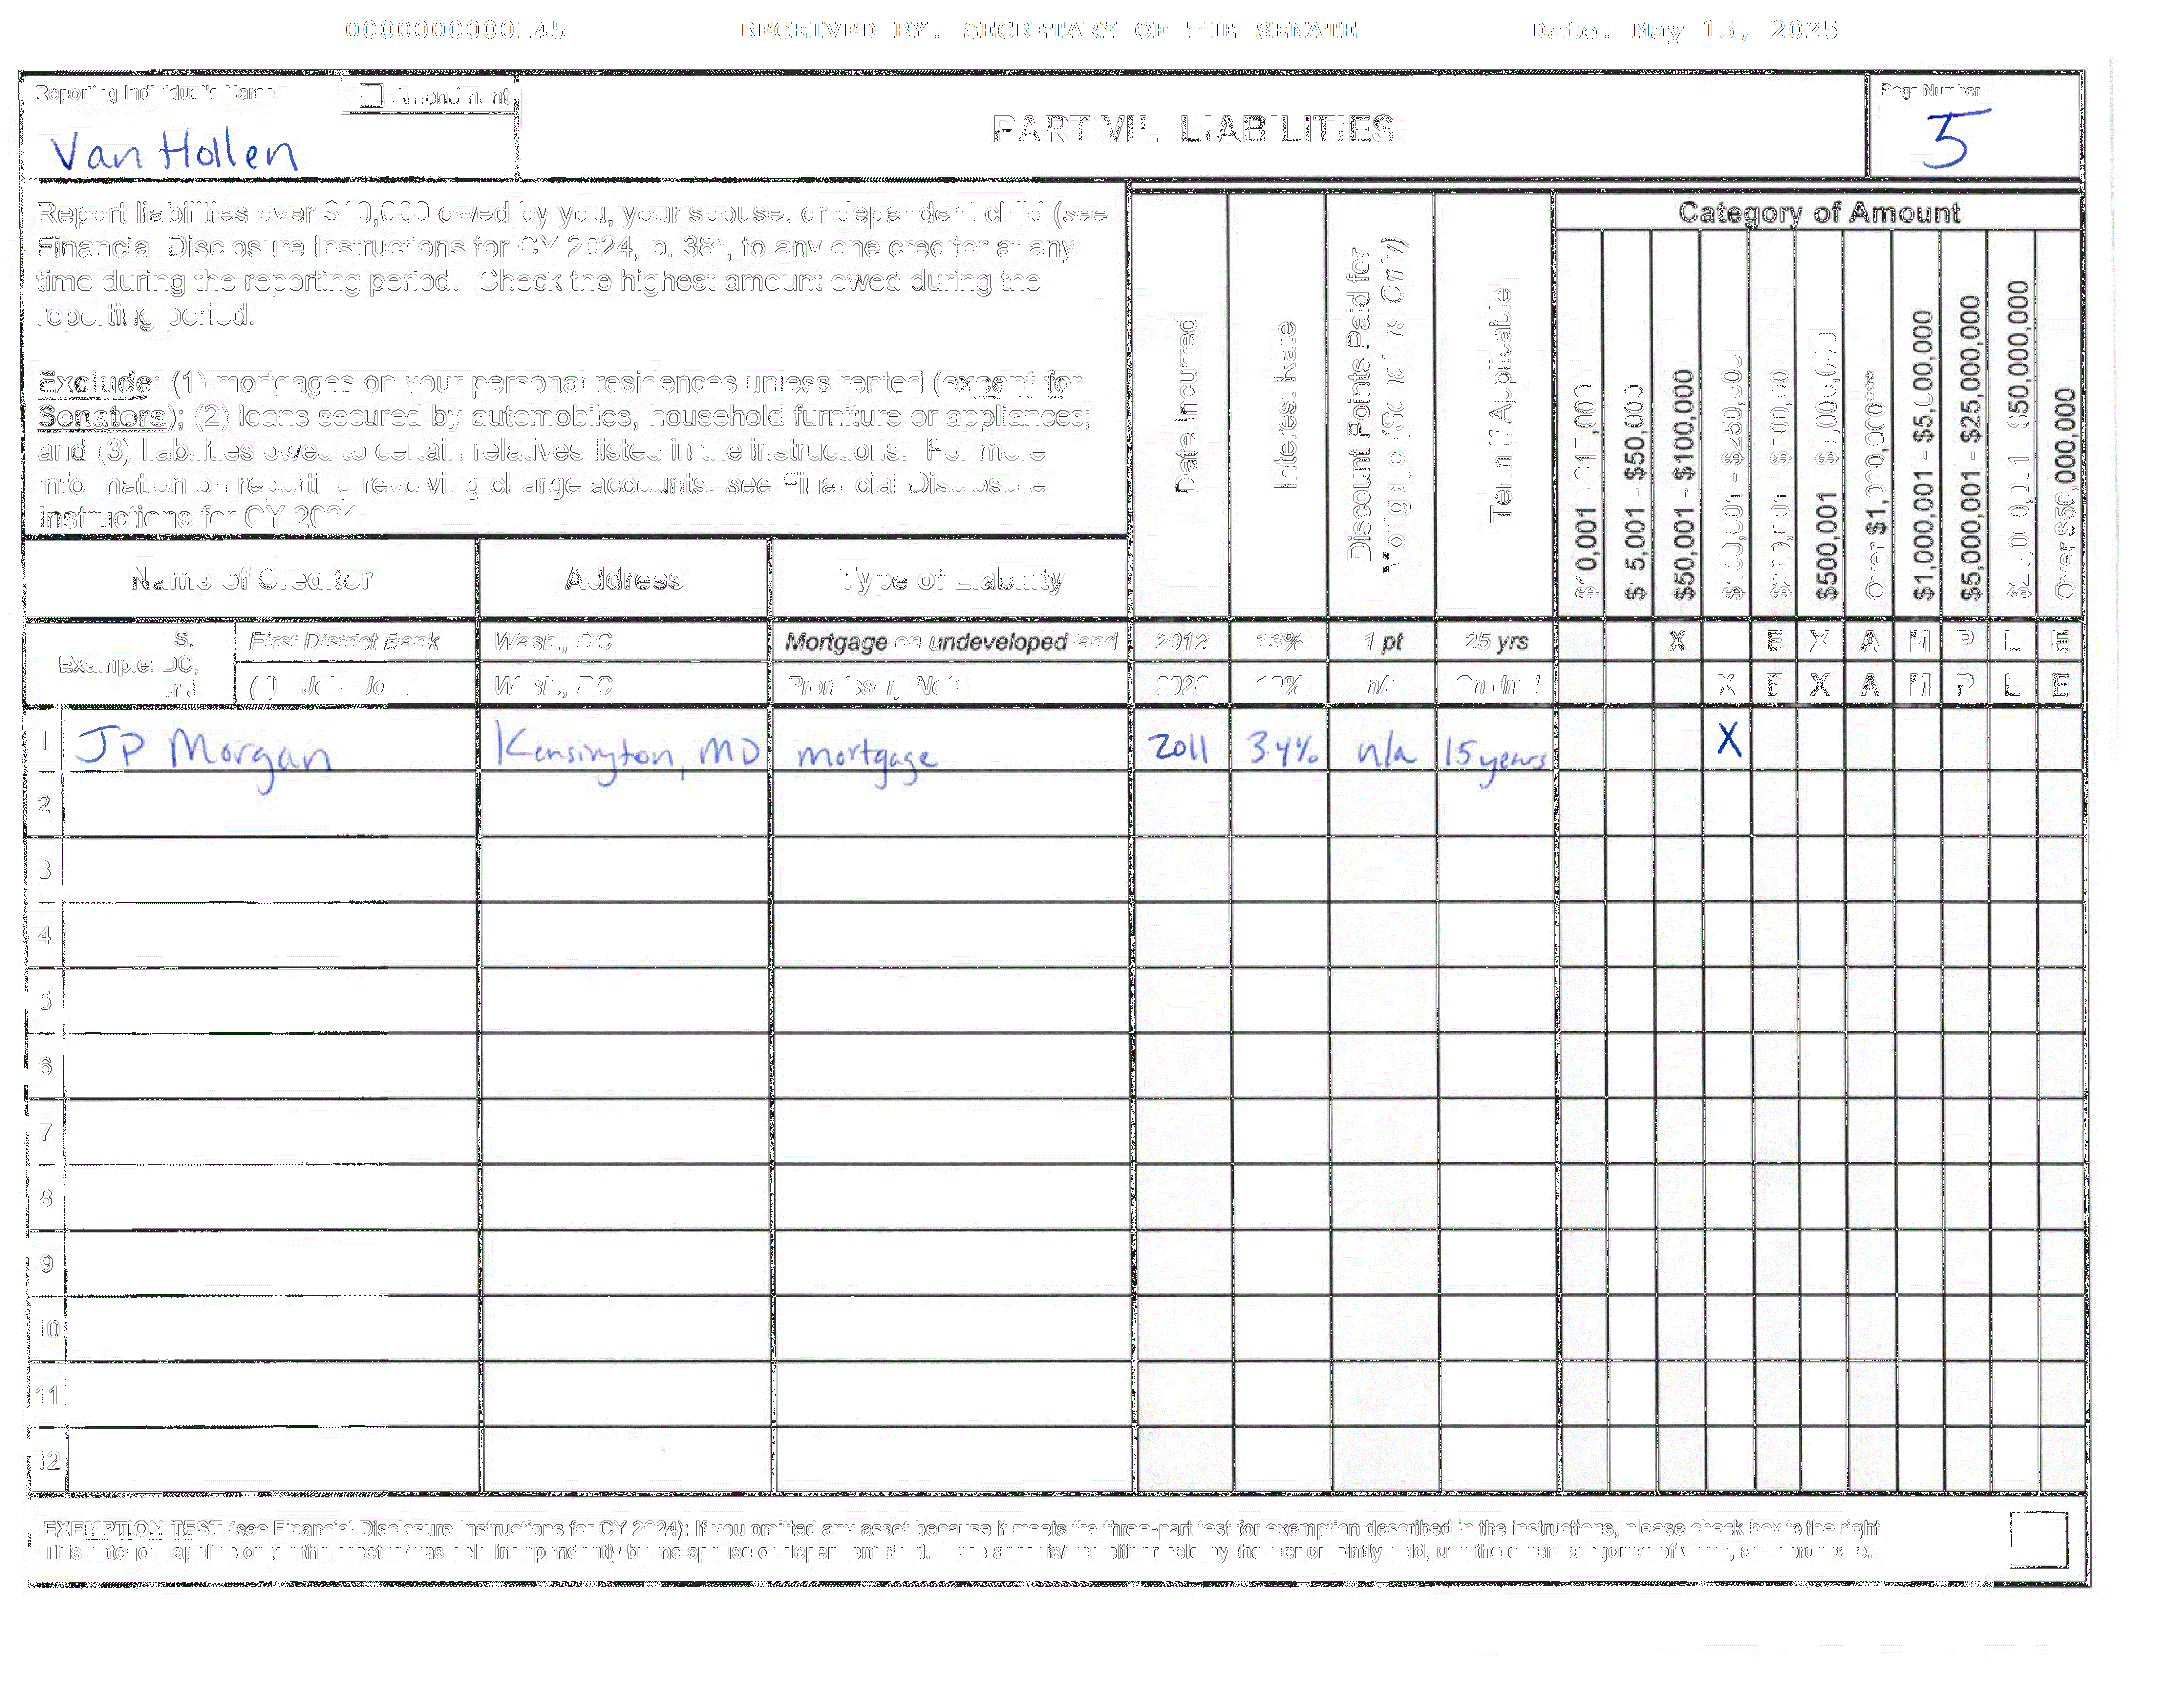 0000000000145 RECEIVED BY: SECRETARY OF THE SENATE Date: May 15, 2025
Reporting Individual's Name Amendment
Van Hollen
PART VII. LIABILITIES
Page Number
5
Report liabilities over $10,000 owed by you, your spouse, or dependent child (see
Financial Disclosure Instructions for CY 2024, p. 38), to any one creditor at any
time during the reporting period. Check the highest amount owed during the
reporting period.
Exclude: (1) mortgages on your personal residences unless rented (except for
Senators); (2) loans secured by automobiles, household furniture or appliances;
and (3) liabilities owed to certain relatives listed in the instructions. For more
information on reporting revolving charge accounts, see Financial Disclosure
Instructions for CY 2024.
Name of Creditor Address Type of Liability
Date Incurred
Interest Rate
Discount Points Paid for
Mortgage (Senators Only)
Term if Applicable
Category of Amount
$10,001 - $15,000
$15,001 - $50,000
$50,001 - $100,000
$100,001 - $250,000
$250,001 - $500,000
$500,001 - $1,000,000
Over $1,000,000***
$1,000,001 - $5,000,000
$5,000,001 - $25,000,000
$25,000,001 - $50,000,000
Over $50,000,000
Example: S, DC, or J
First District Bank Wash., DC Mortgage on undeveloped land 2012 13% 1 pt 25 yrs X E X A M P L E
(J) John Jones Wash., DC Promissory Note 2020 10% n/a On dmd X E X A M P L E
1 JP Morgan Kensington, MD mortgage 2011 3.4% n/a 15 years X
2
3
4
5
6
7
8
9
10
11
12
EXEMPTION TEST (see Financial Disclosure Instructions for CY 2024): If you omitted any asset because it meets the three-part test for exemption described in the instructions, please check box to the right.
This category applies only if the asset is/was held independently by the spouse or dependent child. If the asset is/was either held by the filer or jointly held, use the other categories of value, as appropriate.